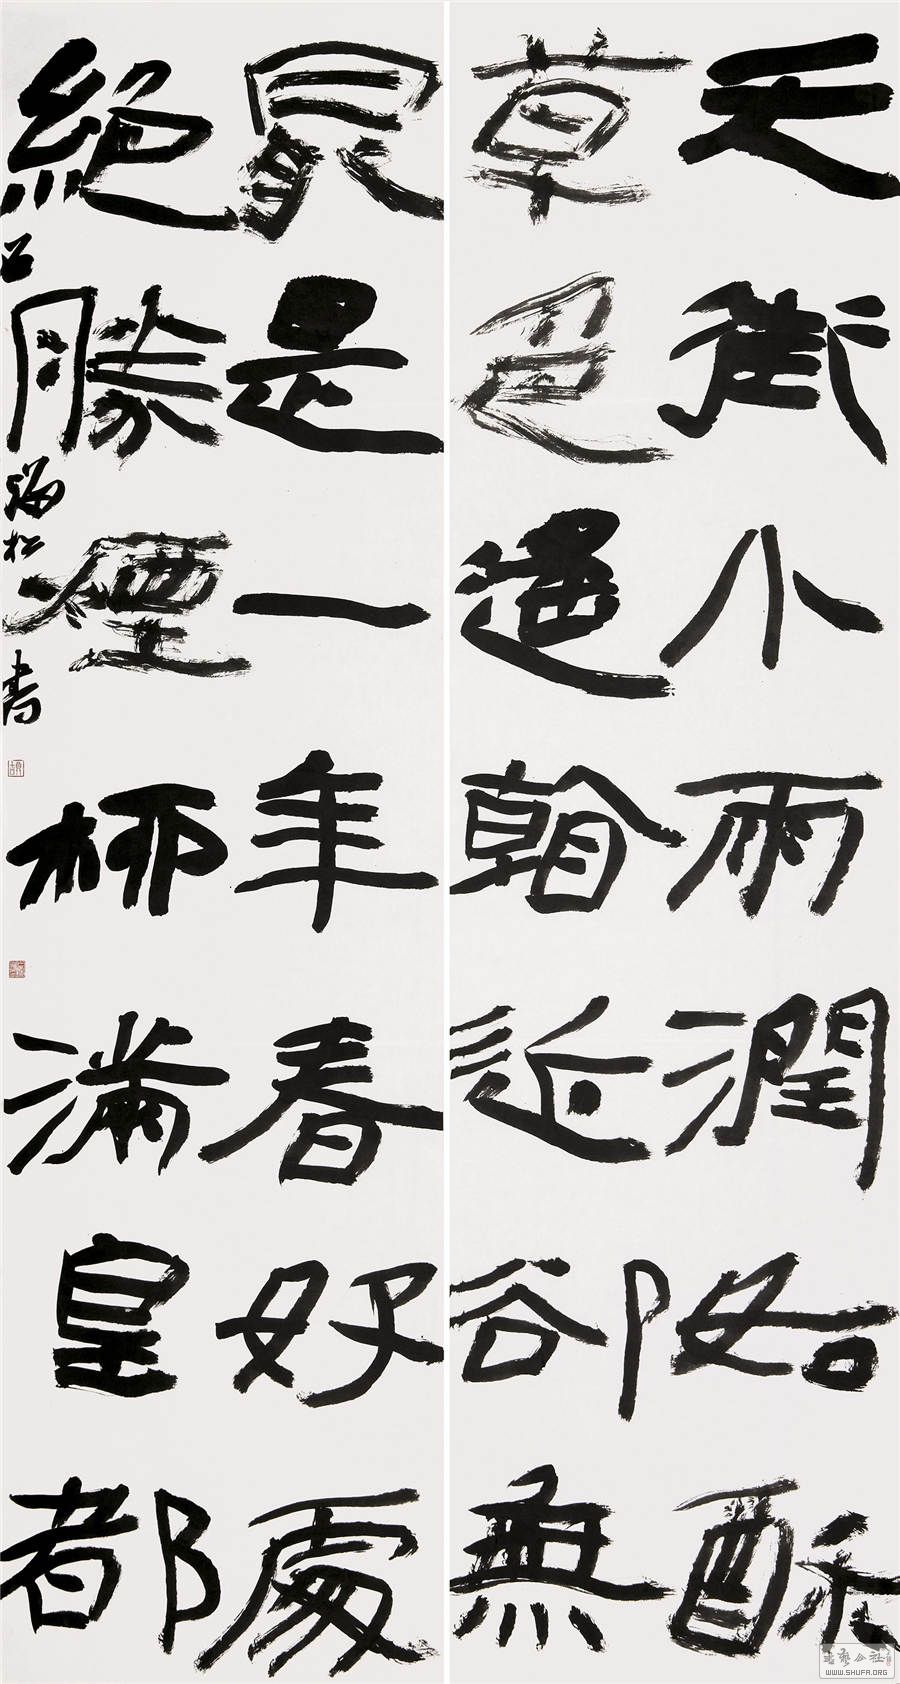 天街小雨潤如酥
草色遙看近卻無
最是一年春好處
絕勝煙柳滿皇都
松 書
WWW.SHUFA.ORG